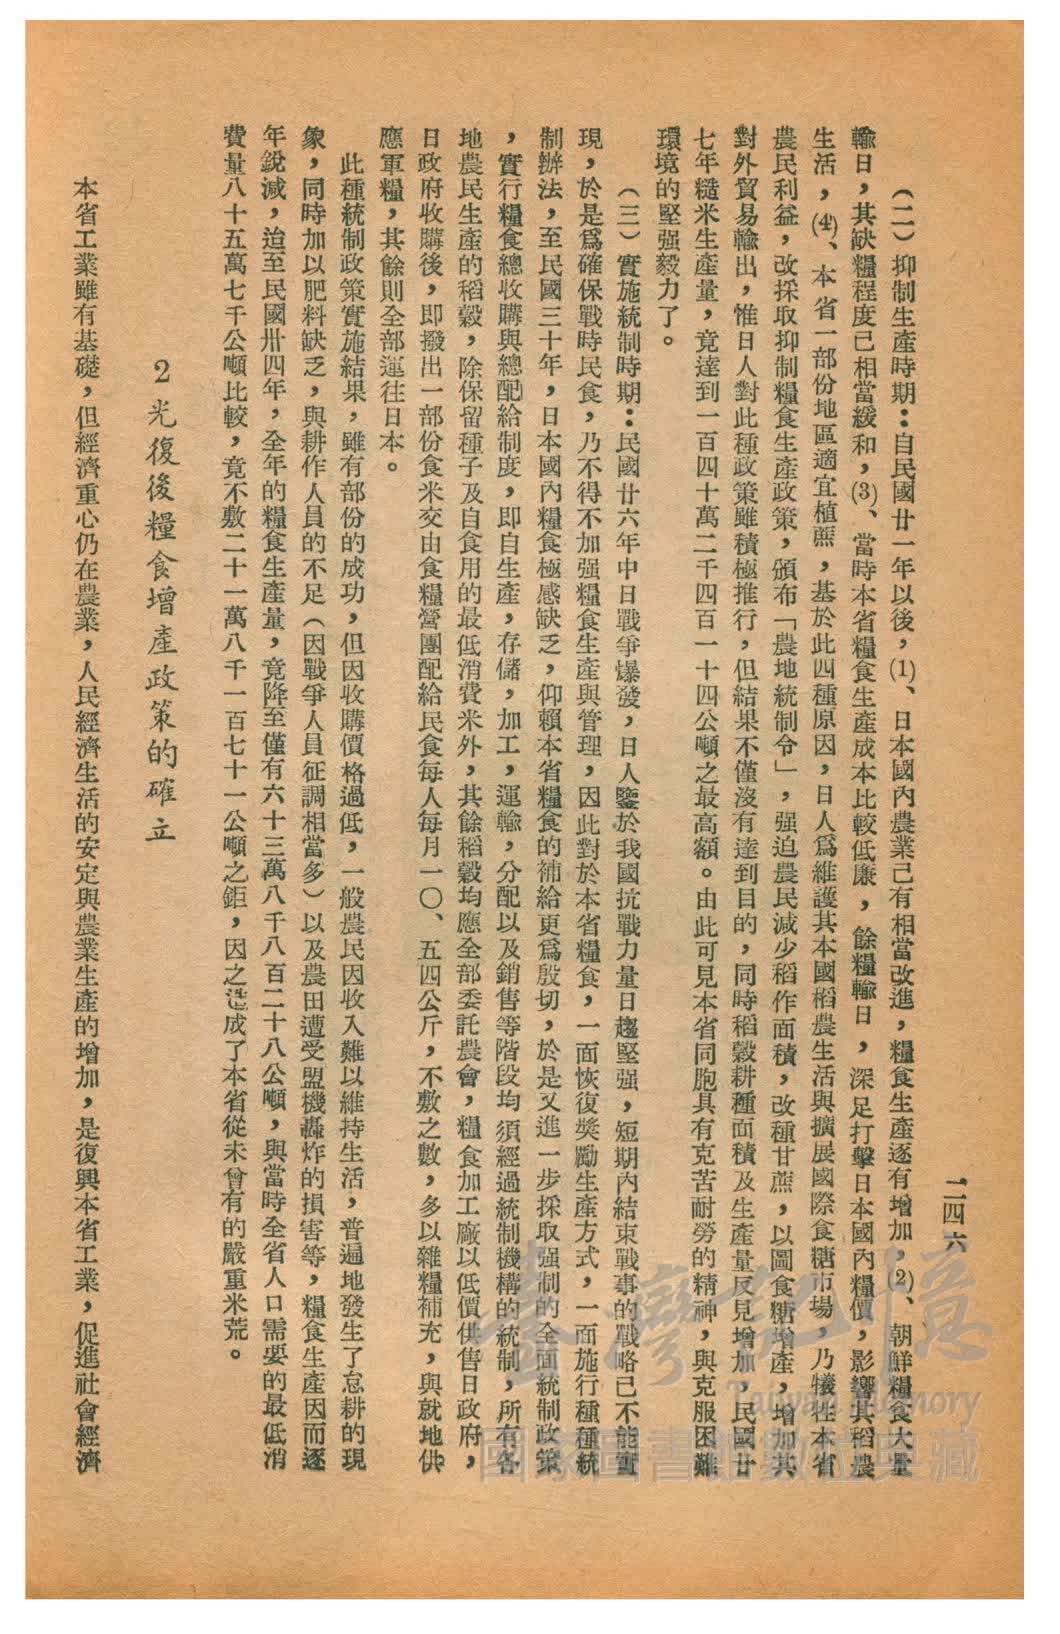 二四六
（二）抑制生產時期：自民國廿一年以後，(1)、日本國內農業已有相當改進，糧食生產逐有增加，(2)、朝鮮糧食大量
輸日，其缺糧程度已相當緩和，(3)、當時本省糧食生產成本比較低廉，餘糧輸日，深足打擊日本國內糧價，影響其稻農
生活，(4)、本省一部份地區適宜植蔗，基於此四種原因，日人爲維護其本國稻農生活與擴展國際食糖市場，乃犧牲本省
農民利益，改採取抑制糧食生產政策，頒布「農地統制令」，强迫農民減少稻作面積，改種甘蔗，以圖食糖增產，增加其
對外貿易輸出，惟日人對此種政策雖積極推行，但結果不僅沒有達到目的，同時稻穀耕種面積及生產量反見增加，民國廿
七年糙米生產量，竟達到一百四十萬二千四百一十四公噸之最高額。由此可見本省同胞具有克苦耐勞的精神，與克服困難
環境的堅强毅力了。
（三）實施統制時期：民國廿六年中日戰爭爆發，日人鑒於我國抗戰力量日趨堅强，短期內結束戰事的戰略已不能實
現，於是爲確保戰時民食，乃不得不加强糧食生產與管理，因此對於本省糧食，一面恢復獎勵生產方式，一面施行種種統
制辦法，至民國三十年，日本國內糧食極感缺乏，仰賴本省糧食的補給更爲殷切，於是又進一步採取强制的全面統制政策
，實行糧食總收購與總配給制度，即自生產，存儲，加工，運輸，分配以及銷售等階段均須經過統制機構的統制，所有各
地農民生產的稻穀，除保留種子及自食用的最低消費米外，其餘稻穀均應全部委託農會，糧食加工廠以低價供售日政府，
日政府收購後，即撥出一部份食米交由食糧營團配給民食每人每月一〇、五四公斤，不敷之數，多以雜糧補充，與就地供
應軍糧，其餘則全部運往日本。
此種統制政策實施結果，雖有部份的成功，但因收購價格過低，一般農民因收入難以維持生活，普遍地發生了怠耕的現
象，同時加以肥料缺乏，與耕作人員的不足（因戰爭人員征調相當多）以及農田遭受盟機轟炸的損害等，糧食生產因而逐
年銳減，迨至民國卅四年，全年的糧食生產量，竟降至僅有六十三萬八千八百二十八公噸，與當時全省人口需要的最低消
費量八十五萬七千公噸比較，竟不敷二十一萬八千一百七十一公噸之鉅，因之造成了本省從未曾有的嚴重米荒。
2光復後糧食增產政策的確立
本省工業雖有基礎，但經濟重心仍在農業，人民經濟生活的安定與農業生產的增加，是復興本省工業，促進社會經濟
臺灣記憶
Taiwan Memory
國家圖書館數位典藏